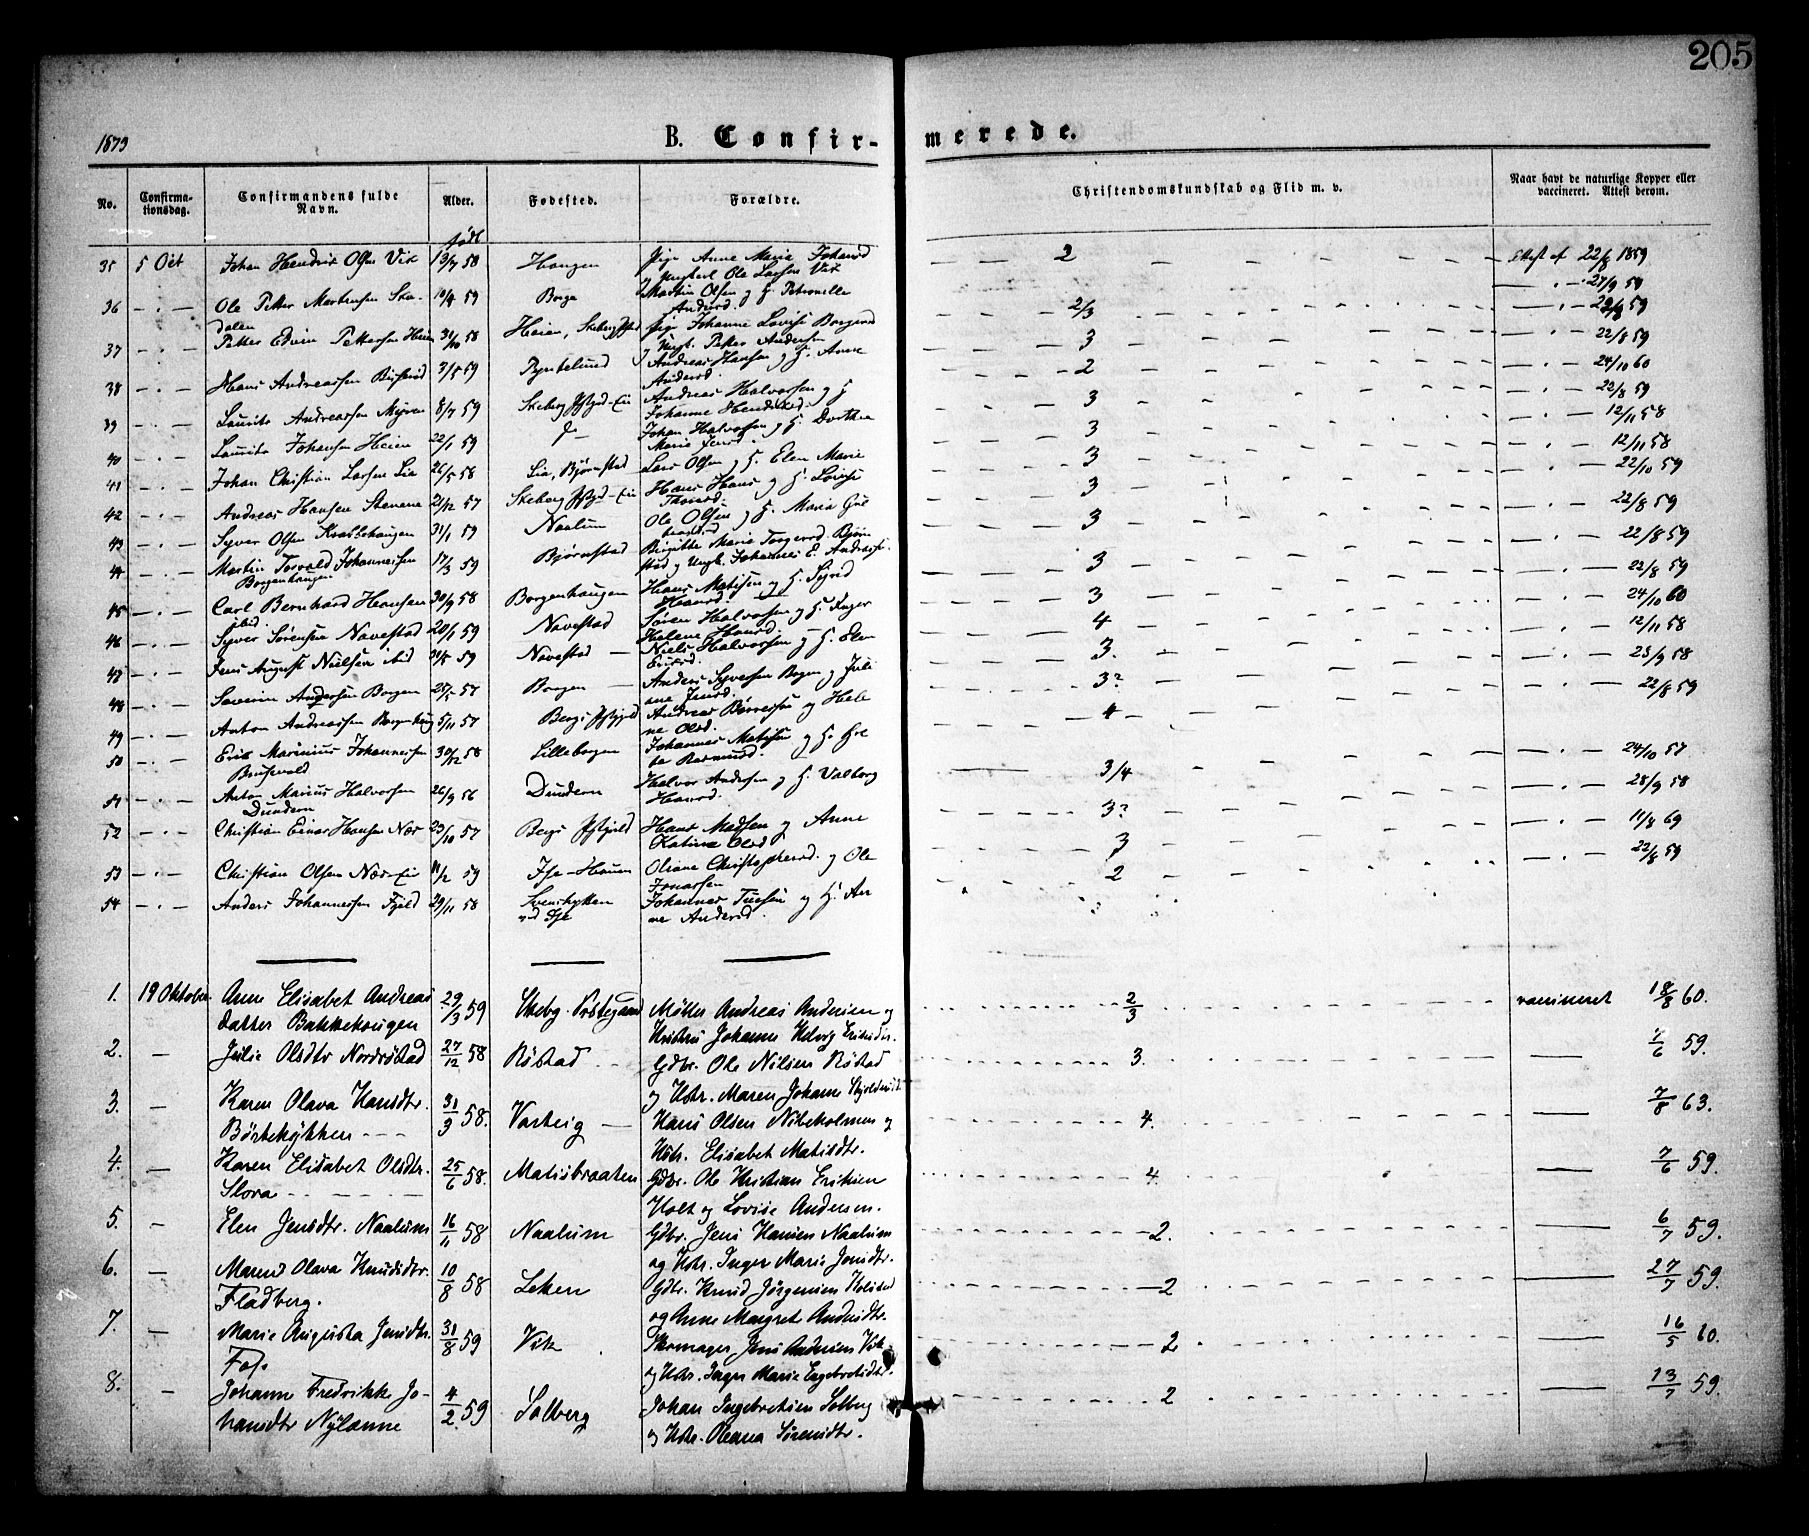 205
1873
B. Confir-
merede.
No.
Confirma-
tionsdag.
Confirmandens fulde
Navn.
Alder.
Fødested.
Forældre.
Christendomskundskab og Flid m. v.
Naar havt de naturlige Kopper eller
vaccineret. Attest derom.
født
35 5 Oct Johan Hendrik Olsen Vik 13/7 58 Haugen Pige Anne Marie Johansd 2 Attest af 22/8 1859
og Ungkarl Ole Larsen Vik
36 - " - Ole Petter Martinsen Sta- 10/4 59 Borge Martin Olsen og H. Petronelle 2/3
dalen Andersd.
37 - " - Petter Edvin Pettersen Heien 31/10 58 Heien, Skeberg Pige Johanne Lovise Borgersd 3 22/8 59
Ungk. Petter Andersen
38 - " - Hans Andreassen 3/5 59 Andreas Hansen og H. Anne 2 24/10 60
Andersd.
39 - " - Laurits Andreassen Myren 8/7 59 Skeberg Andreas Halvorsen og H 3 22/8 59
Johanne Hendriksd.
40 - " - Laurits Johansen Heien 22/1 59 Johan Halvorsen og H. Dorthea 3 12/11 58
Marie Jensd.
41 - " - Johan Christian Larsen Lia 26/5 58 Lia, Bjørnstad Lars Olsen og H. Elen Marie 3 12/11 58
42 - " - Andreas Hansen Stenene 21/12 57 Skeberg Hans Hans og H. Lovise 3 22/10 59
43 - " - Syver Olsen 31/1 59 Naalum Ole Olsen og H. Maria Gul 3 22/8 59
44 - " - Martin Torvald Johannessen 17/3 59 Bjørnstad Birgitte Marie Torgersd. Bjørn 3 22/8 59
Borgenhaugen stad og Ungk. Johannes E. Andreas
45 - " - Carl Bernhard Hansen 30/9 58 Borgenhaugen Hans Matisen og H. Sigrid 3 22/8 59
ibid Hansd.
46 - " - Syver Sørensen Navestad 20/1 59 Navestad Søren Halvorsen og H. Inger 4 24/10 60
Helene Hansd.
47 - " - Jens August Nielsen ibid 31/5 59 Navestad - Niels Halvorsen og H. Elen 3. 12/11 58
48 - " - Severin Andersen Borgen 25/5 57 Borgen - Anders Syversen Borgen og Juli 3? 23/9 58
ane Jensd.
49 - " - Anton Andreassen Borgenhaug 5/11 57 Bergs Andreas Børresen og Hele 4 22/8 59
ne Olsd.
50 - " - Erik Marinius Johannessen 30/12 58 Lilleborgen Johannes Matisen og H. 3/4 24/10 57
Brusevold
51 - " - Anton Marius Halvorsen 26/9 56 Dundern Halvor Andersen og H. Valborg 3? 28/9 58
Dundern Hansd.
52 - " - Christian Einar Hansen Næs 23/10 57 Bergs Hans Madsen og Anne 3 11/8 69
Katrine Olsd
53 - " - Christian Olsen Næs-Eie 11/2 59 Ise-Haven Oliane Christophersd. og Ole 2 22/8 59
Jonassen
54 - " - Anders Johannessen Fjeld 29/11 58 Svenskykken Johannes og H. An
ved Ise ne Andersd.
1. 19 Oktober Anne Elisabet Andreas 29/3 59 Skebg. Prstegaard Møller Andreas Andersen og 2/3 vaccineret 18/8 60.
datter Bakkehougen Hustru Johanne Helvig Eriksdtr.
2. - Julie Olsdtr Nordrøstad 27/12 58 Røstad Gdbr. Ole Nilsen Røstad 3. 7/6 59.
og Hstr. Maren Johanne
3. - Karen Olava Hansdtr. 31/3 58. Varteig - Hans Olsen Nibeholmen og 4. 7/8 63.
Børtekykken Hstr. Elisabet Matisdtr.
4. - Karen Elisabet Olsdtr. 25/6 58. Matisbraaten Gdbr. Ole Kristian Eriksen 4. 7/6 59.
Slora Holt og Lovise Andersen.
5. - Elen Jensdtr. Naalum 16/11 58 Naalum Gdbr. Jens Hansen Naalum 2. 6/7 59.
og Hstr. Inger Marie Jensdtr.
6. - Maren Olava Knudsdtr. 10/8 58 Leken Gdbr. Knud Jørgensen Kolstad 2 27/7 59.
Fladberg. og Anne Margret Andersdtr.
7. - Marie Augusta Jensdtr. 31/8 59 Vik Skomager Jens Andersen Vik 2 16/5 60.
Fos. og Hstr. Inger Marie Engebretsdtr.
8. - Johanne Fredrikke Jo- 4/2 59 Solberg Johan Ingebretsen Solberg 2 13/7 59.
hansdtr Nylænne og Hstr. Oleana Sørensdtr.